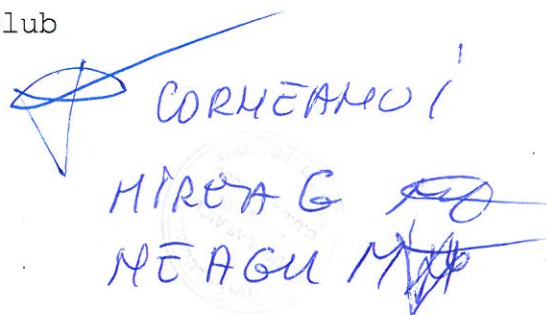 lub
CORNEANU I
MIREA G
NEAGU M